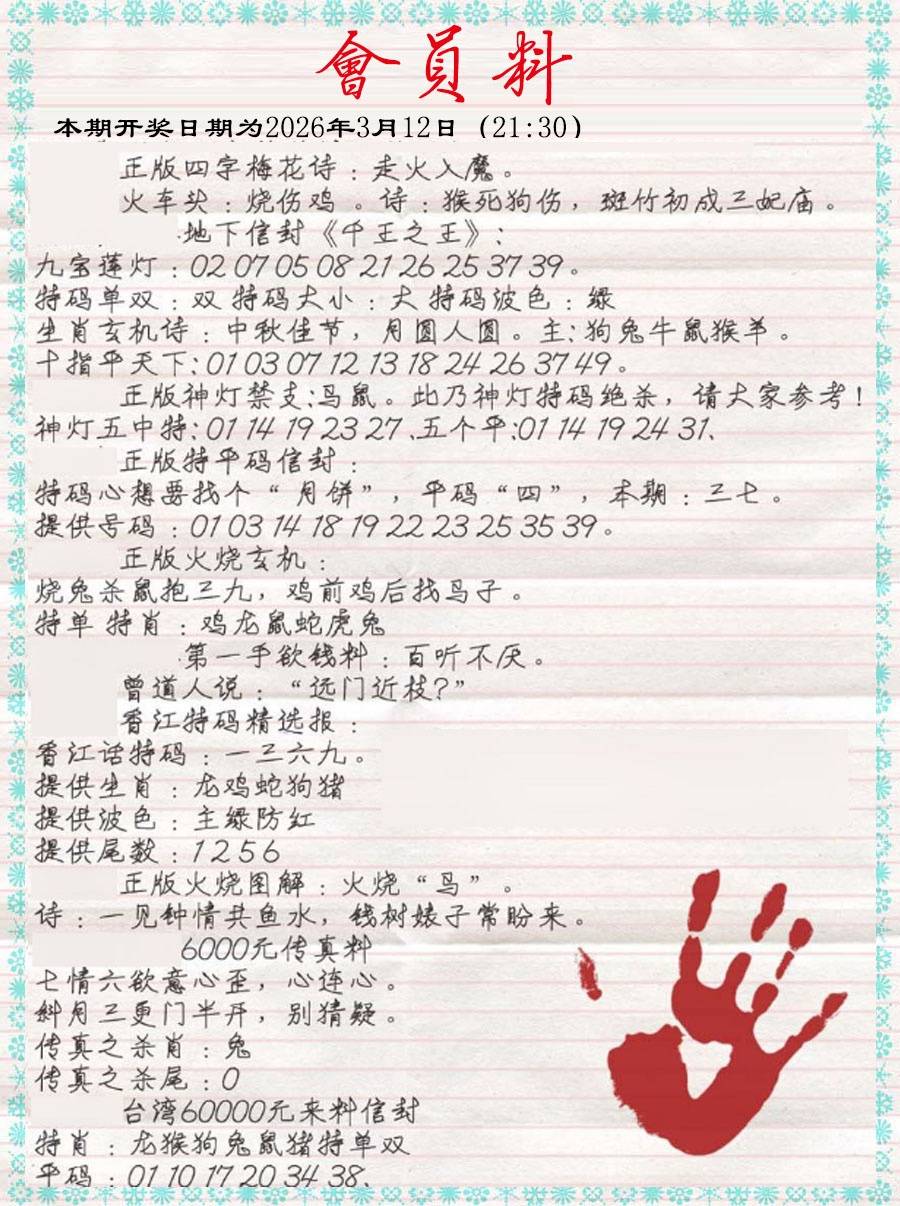 會員料
本期开奖日期为2026年3月12日（21:30）
正版四字梅花诗：走火入魔。
火车头：烧伤鸡。诗：猴死狗伤，斑竹初成三妃庙。
地下信封《千王之王》：
九宝莲灯：02 07 05 08 21 26 25 37 39。
特码单双：双 特码大小：大 特码波色：绿
生肖玄机诗：中秋佳节，月圆人圆。主：狗兔牛鼠猴羊。
十指平天下：01 03 07 12 13 18 24 26 37 49。
正版神灯禁支：马鼠。此乃神灯特码绝杀，请大家参考！
神灯五中特：01 14 19 23 27、五个平：01 14 19 24 31、
正版特平码信封：
特码心想要找个“月饼”，平码“四”，本期：三七。
提供号码：01 03 14 18 19 22 23 25 35 39。
正版火烧玄机：
烧兔杀鼠抱三九，鸡前鸡后找马子。
特单 特肖：鸡龙鼠蛇虎兔
第一手欲钱料：百听不厌。
曾道人说：“远门近枝？”
香江特码精选报：
香江话特码：一三六九。
提供生肖：龙鸡蛇狗猪
提供波色：主绿防红
提供尾数：1 2 5 6
正版火烧图解：火烧“鸟”。
诗：一见钟情共鱼水，钱树婊子常盼来。
6000元传真料
七情六欲意心歪，心连心。
斜月三更门半开，别猜疑。
传真之杀肖：兔
传真之杀尾：0
台湾60000元来料信封
特肖：龙猴狗兔鼠猪特单双
平码：01 10 17 20 34 38、